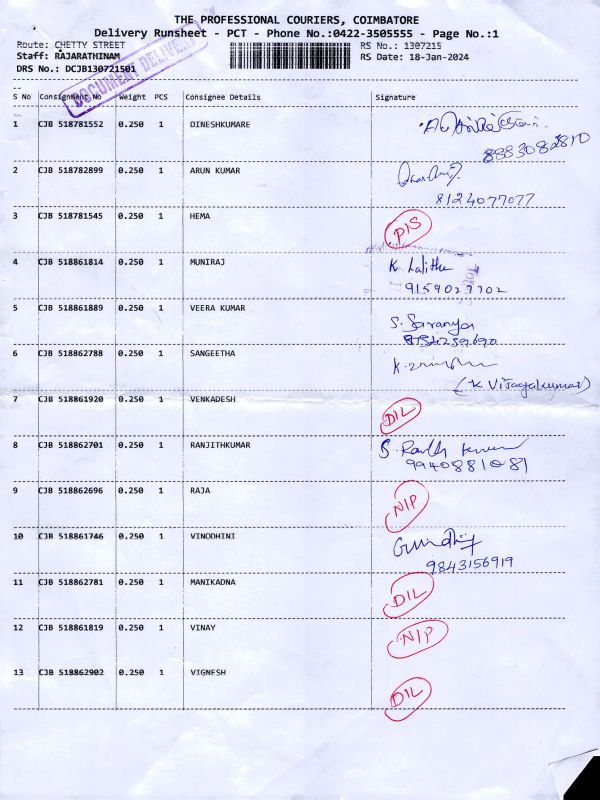 THE PROFESSIONAL COURIERS, COIMBATORE
Delivery Runsheet - PCT - Phone No.:0422-3505555 - Page No.:1
Route: CHETTY STREET RS No.: 1307215
Staff: RAJARATHINAM RS Date: 18-Jan-2024
DRS No.: DCJB130721501
DOCUMENT DELIVERY
S No Consignment No Weight PCS Consignee Details Signature
1 CJB 518781552 0.250 1 DINESHKUMARE
8883082810
2 CJB 518782899 0.250 1 ARUN KUMAR
8124077077
3 CJB 518781545 0.250 1 HEMA PIS
4 CJB 518861814 0.250 1 MUNIRAJ K. Lalitha
9159027702
5 CJB 518861889 0.250 1 VEERA KUMAR S. Saranya
6 CJB 518862788 0.250 1 SANGEETHA
(K Vijayakumar)
7 CJB 518861920 0.250 1 VENKADESH DIL
8 CJB 518862701 0.250 1 RANJITHKUMAR
9940881081
9 CJB 518862696 0.250 1 RAJA N/P
10 CJB 518861746 0.250 1 VINODHINI
9843156919
11 CJB 518862781 0.250 1 MANIKADNA DIL
12 CJB 518861819 0.250 1 VINAY N/P
13 CJB 518862902 0.250 1 VIGNESH DIL